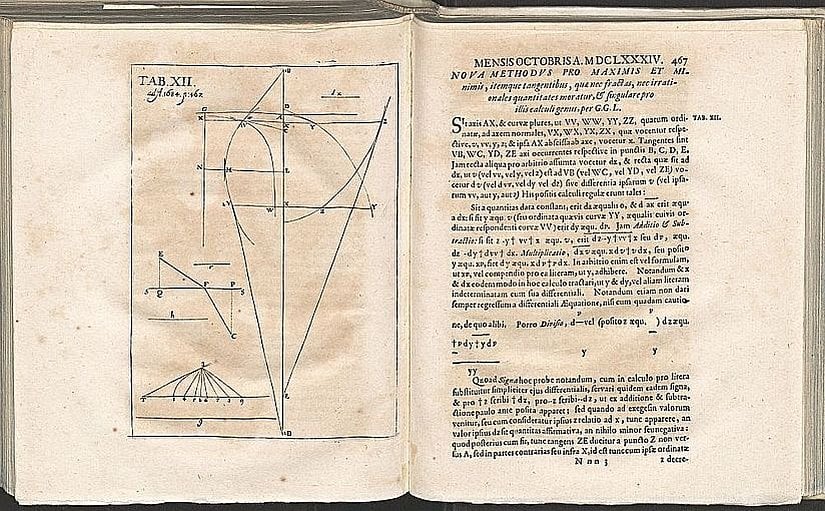 TAB. XII.
MENSIS OCTOBRIS A. M DC LXXXIV. 467
NOVA METHODVS PRO MAXIMIS ET MI-
nimis, itemque tangentibus, quæ nec fractas, nec irrati-
onales quantitates moratur, & singulare pro
illis calculi genus, per G.G.L.
Sit axis AX, & curvæ plures, ut VV, WW, YY, ZZ, quarum ordi- TAB. XII.
natæ, ad axem normales, VX, WX, YX, ZX, quæ vocentur respe-
ctive, v, w, y, z; & ipsa AX abscissa ab axe, vocetur x. Tangentes sint
VB, WC, YD, ZE axi occurrentes respective in punctis B, C, D, E.
Jam recta aliqua pro arbitrio assumta vocetur dx, & recta quæ sit ad
dx, ut v (vel w, vel y, vel z) est ad VB (vel WC, vel YD, vel ZE) vo-
cetur dv (vel dw, vel dy vel dz) sive differentia ipsarum v (vel ipsa-
rum w, aut y, aut z) His positis calculi regulæ erunt tales:
Sit a quantitas data constans, erit da æqualis 0, & d ax erit æqu.
a dx: si sit y æqu. v (seu ordinata quævis curvæ YY, æqualis cuivis or-
dinatæ respondenti curvæ VV) erit dy æqu. dv. Jam Additio & Sub-
tractio: si sit z - y † w † x æqu. v, erit dz - y † w † x seu dv, æqu.
dz - dy † dw † dx. Multiplicatio, dxv æqu. x dv † v dx, seu posito
y æqu. xv, fiet dy æqu. x dv † v dx. In arbitrio enim est vel formulam,
ut xv, vel compendio pro ea literam, ut y, adhibere. Notandum & x
& dx eodem modo in hoc calculo tractari, ut y & dy, vel aliam literam
indeterminatam cum sua differentiali. Notandum etiam non dari
semper regressum a differentiali Æquatione, nisi cum quadam cautio-
v v
ne, de quo alibi. Porro Divisio, d — vel (posito z æqu. ) dz æqu.
† v dy † y dv y y
yy
Quoad Signa hoc probe notandum, cum in calculo pro litera
substituitur simpliciter ejus differentialis, servari quidem eadem signa,
& pro † z scribi † dz, pro - z scribi - dz, ut ex additione & subtra-
ctione paulo ante posita apparet; sed quando ad exegesin valorum
venitur, seu cum consideratur ipsius z relatio ad x, tunc apparere, an
valor ipsius dz sit quantitas affirmativa, an nihilo minor seu negativa:
quod posterius cum fit, tunc tangens ZE ducitur a puncto Z non ver-
sus A, sed in partes contrarias seu infra X, id est tunc cum ipsæ ordinatæ
N nn 3 z decre-